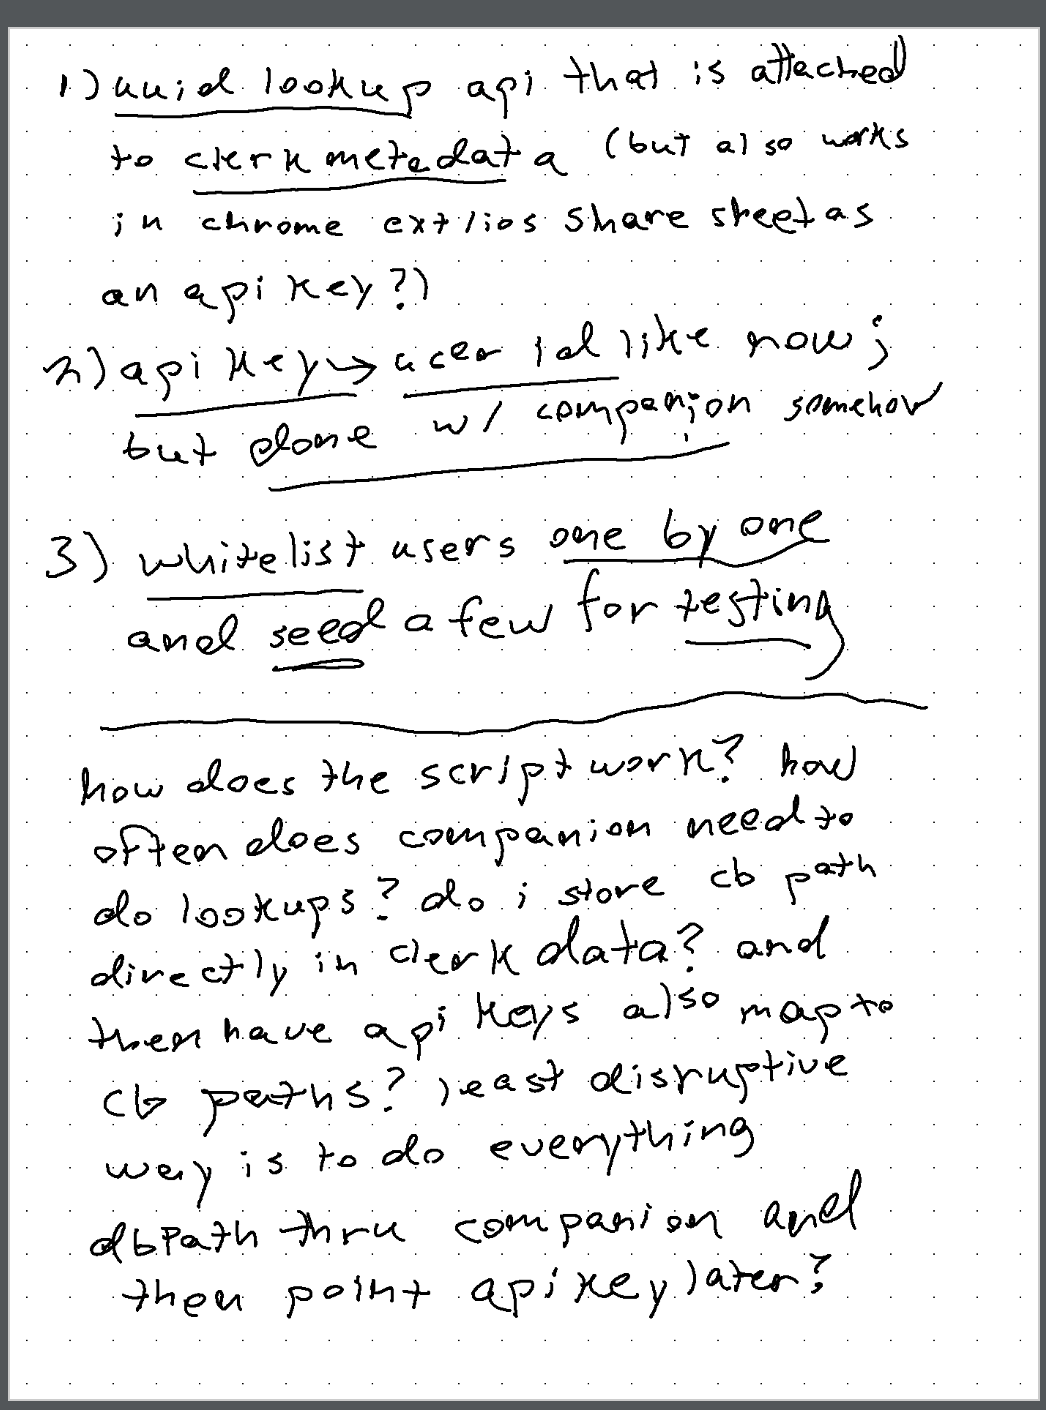 1) uuid lookup api that is attached
to clerk metadata (but also works
in chrome ext/ios share sheet as
an api key?)
2) api key → user id like now;
but done w/ companion somehow
3) whitelist users one by one
and seed a few for testing
how does the script work? how
often does companion need to
do lookups? do i store db path
directly in clerk data? and
then have api keys also map to
db paths? least disruptive
way is to do everything
dbPath thru companion and
then point api key later?